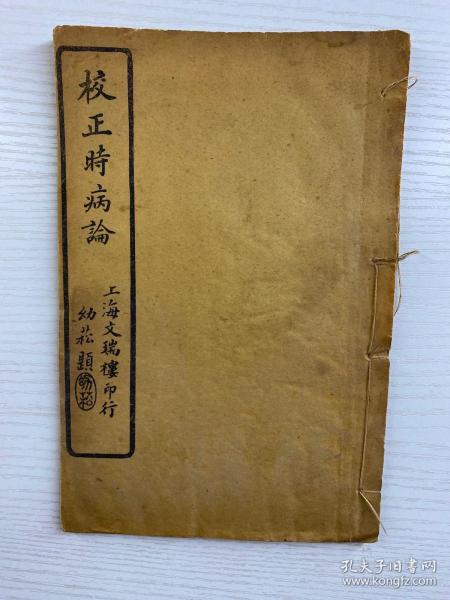 校正時病論
上海文瑞樓印行
幼菘題
幼菘
孔夫子旧书网
www.kongfz.com